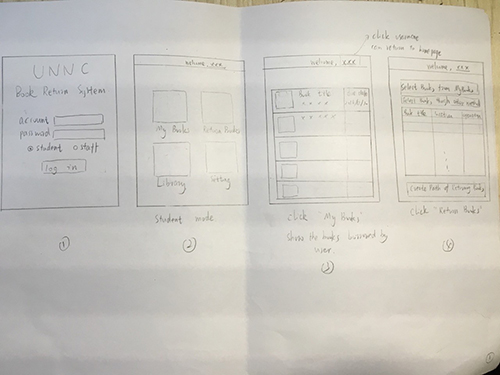 UNNC
Book Return System
account
password
student staff
log in
①
welcome, xxx
My Books Return Books
Library Setting
Student mode
②
click username
can return to homepage
welcome, xxx
Book title
click "My Books"
show the books borrowed by
user.
③
welcome, xxx
Select Books from MyBooks
Book title
Create Path of
click "Return Books"
④
①